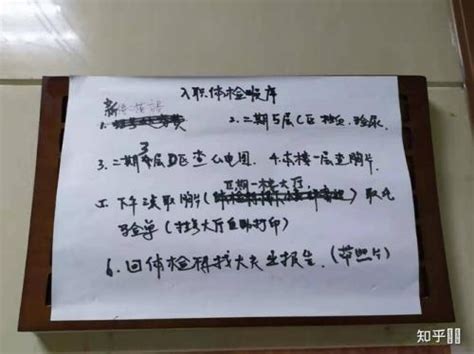 入职体检顺序
1. 2.二期5层C区 抽血、验尿
3.二期3层D区查心电图 4.本楼一层查胸片
二期一楼大厅
5.下午3点取胸片( )取化
验单(挂号大厅自助打印)
6.回体检科找大夫出报告。(带照片)
知乎